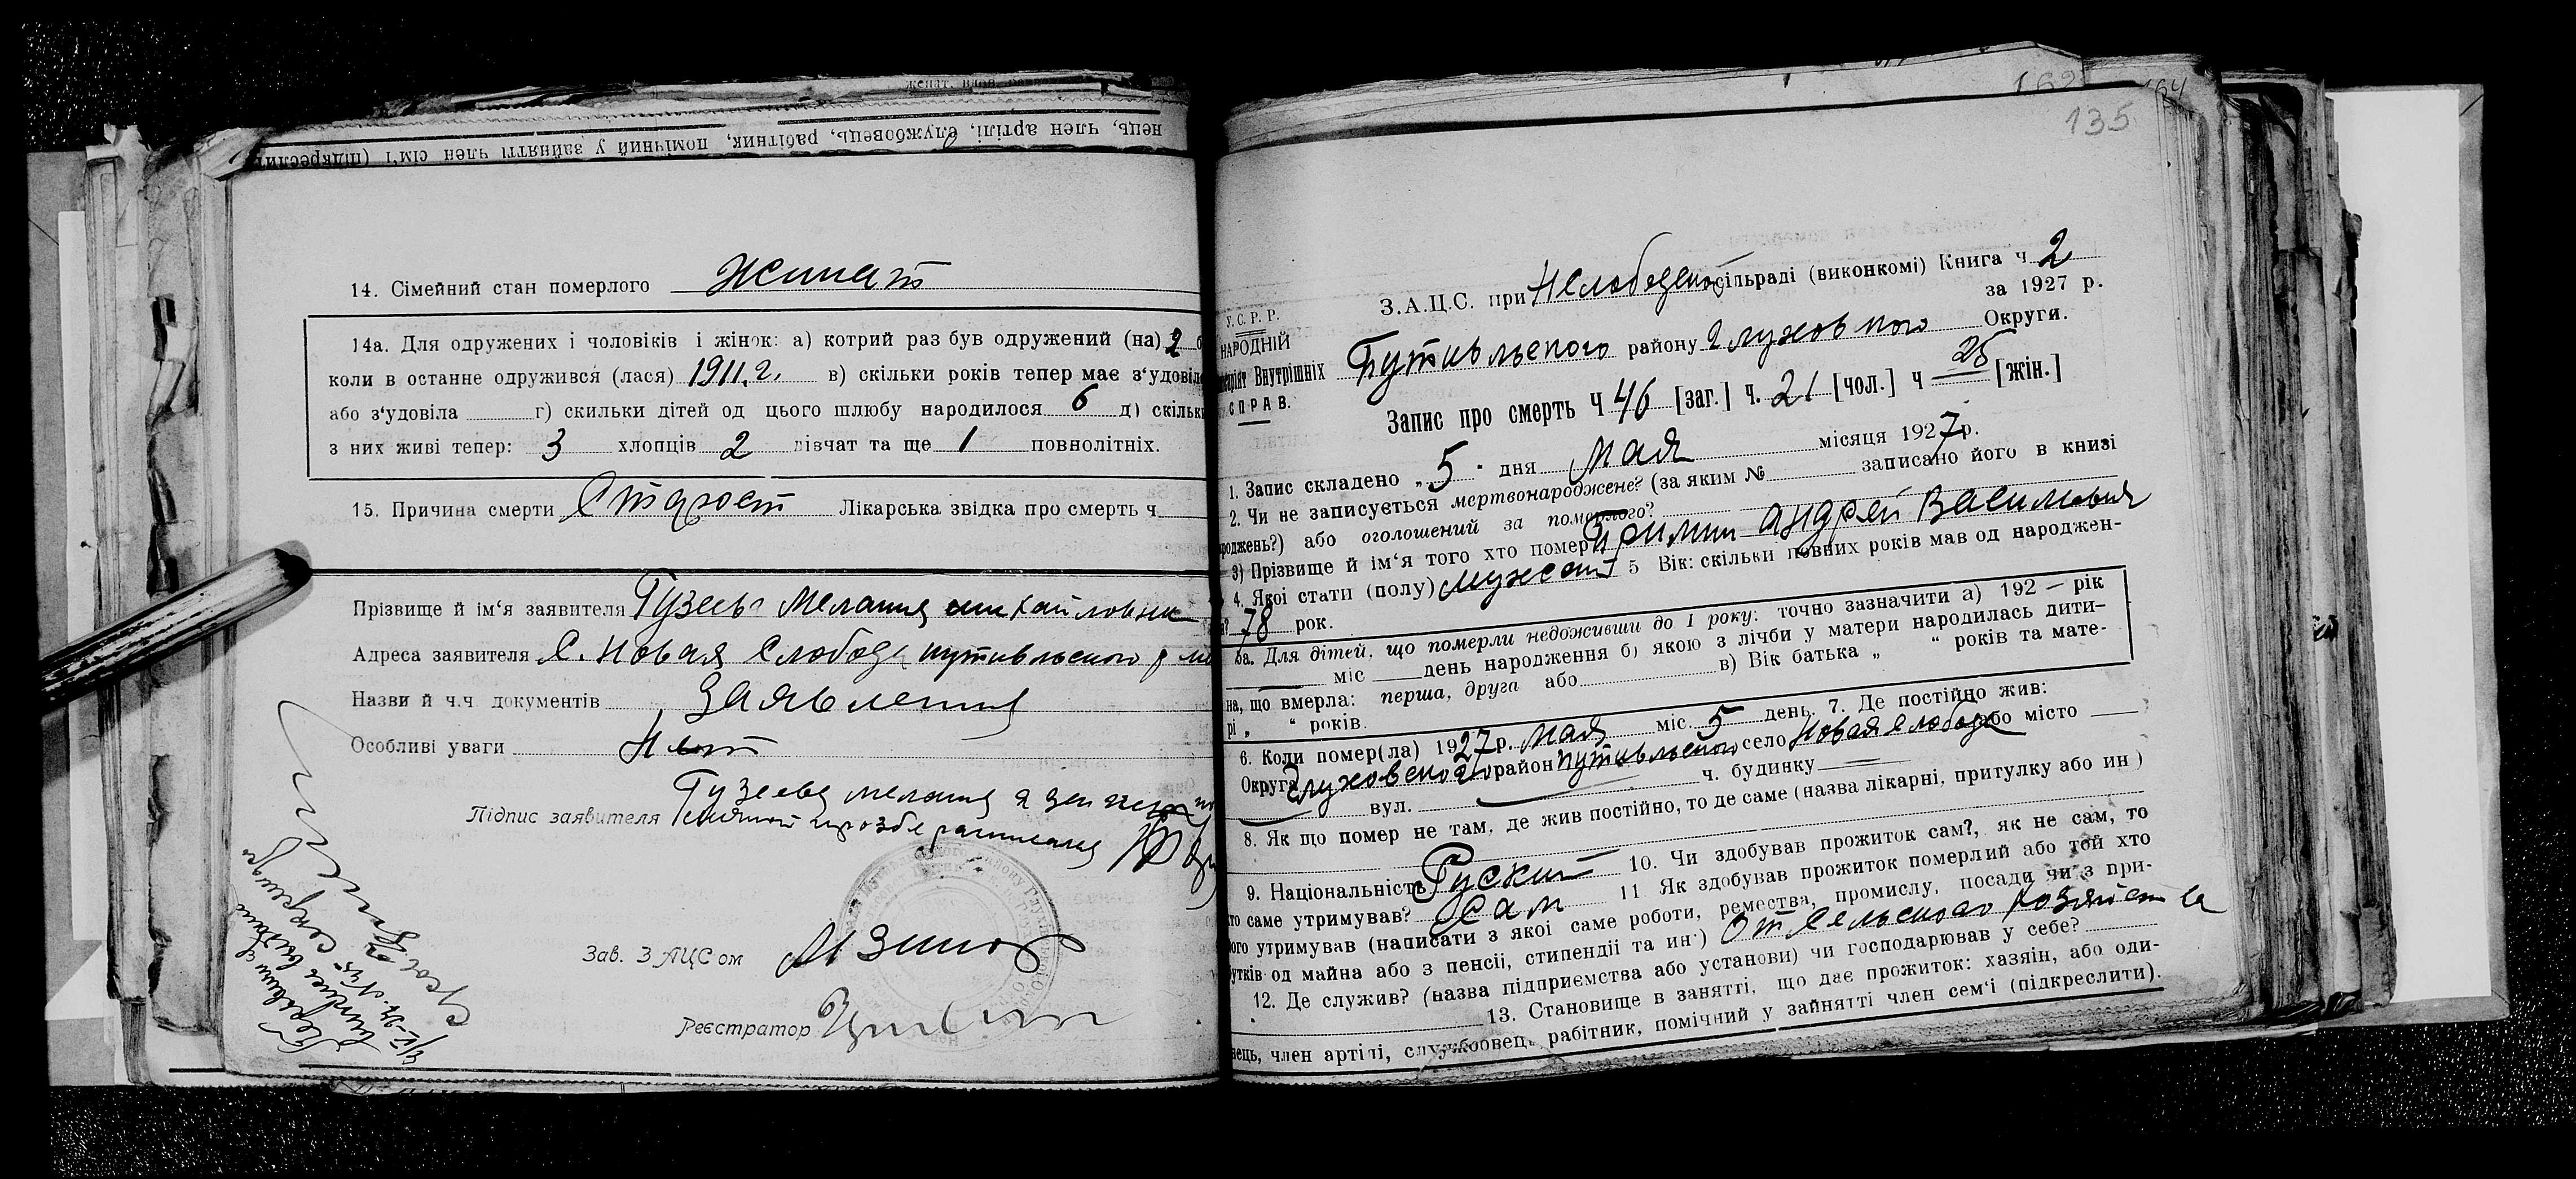 14. Сімейний стан померлого Женат
14а. Для одружених і чоловіків і жінок: а) котрий раз був одружений (на) 2
коли в останне одружився (лася) 1911 г. в) скільки років тепер має з'удовіл
або з'удовіла г) скильки дітей од цього шлюбу народилося 6 д) скільки
з них живі тепер: 3 хлопців 2 дівчат та ще 1 повнолітніх.
15. Причина смерти Старост Лікарська звідка про смерть ч.
Прізвище й ім'я заявителя Гузеева Мелания михайловна
Адреса заявителя С. Новая Слобода путивльского
Назви й ч.ч документів Заявления
Особливі уваги Нет
Підпис заявителя Гузеева мелания а за
просбе расписался
Зав. ЗАЦСом
Реєстратор
135
З.А.Ц.С. при Нслободской сільраді (виконкомі) Книга ч 2
за 1927 р.
У.С.Р.Р.
НАРОДНІЙ
Внутрішніх
СПРАВ.
Путивльского району Глуховского Округи.
Запис про смерть Ч 46 [заг.] ч. 21 [чол.] ч 25 [жін.]
1. Запис складено „5" дня мая місяця 1927 р.
2. Чи не записується мертвонароджене? (за яким № записано його в книзі
роджень?) або оголошений за померлого?
3) Прізвище й ім'я того хто помер Андрей Василович
4. Якої стати (полу) Мужской 5 Вік: скільки повних років мав од народжен-
78 рок.
5а. Для дітей, що померли недоживши до 1 року: точно зазначити а) 192 — рік
міс день народження б) якою з лічби у матери народилась дити-
на, що вмерла: перша, друга або в) Вік батька „ " років та мате-
рі „ " років.
6. Коли помер(ла) 1927 р. мая міс. 5 день. 7. Де постійно жив:
Округа Глуховского район путивльского село Новая слобода або місто
вул. ч. будинку
8. Як що помер не там, де жив постійно, то де саме (назва лікарні, притулку або ин)
9. Національність Руский 10. Чи здобував прожиток сам?, як не сам, то
хто саме утримував? Сам 11 Як здобував прожиток померлий або той хто
його утримував (написати з якої саме роботи, ремества, промислу, посади чи з при-
бутків од майна або з пенсії, стипендії та ин') от сельского хозяйства
12. Де служив? (назва підприємства або установи) чи господарював у себе?
13. Становище в занятті, що дає прожиток: хазяін, або оди-
нець, член артілі, службовець, рабітник, помічний у зайнятті член сем'і (підкреслити).